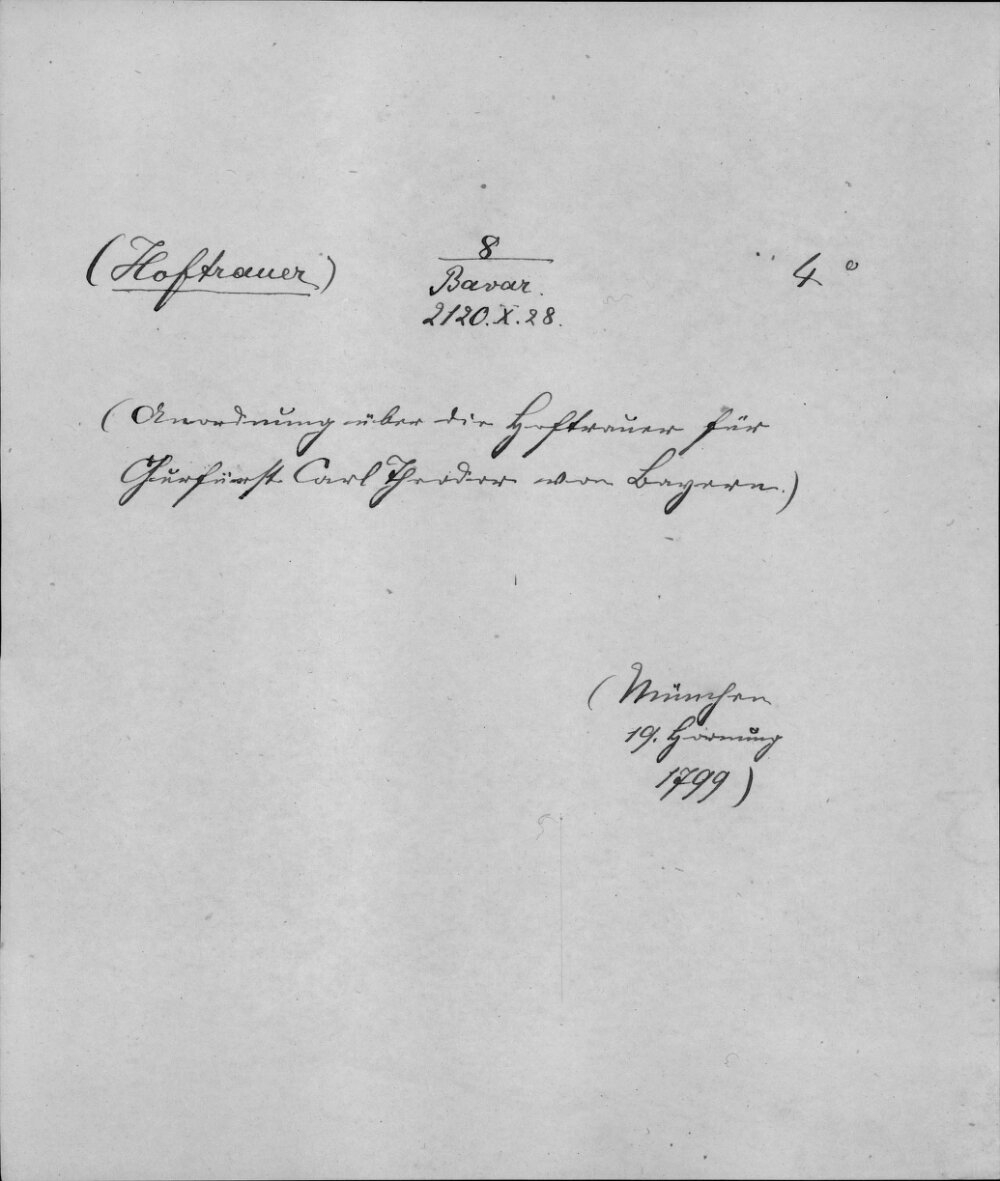 (Hoftrauer)
8
Bavar.
2120.X.28.
4°
(Anordnung über die Hoftrauer für
Churfürst Carl Theodor von Bayern.)
(München
19. Hornung
1799)